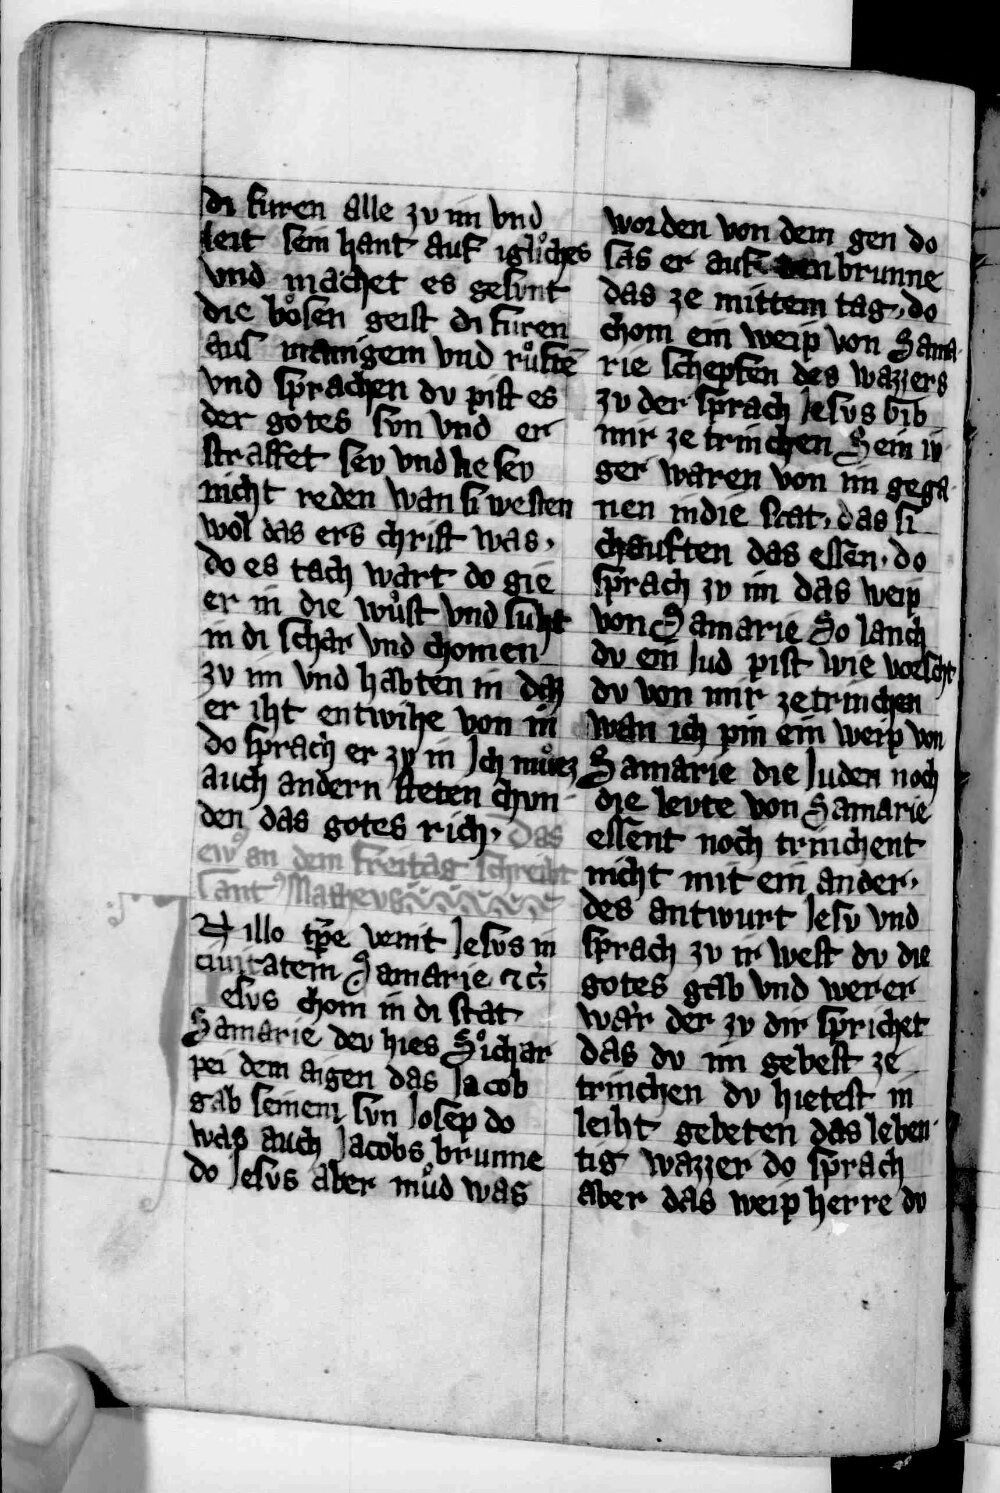 di furen alle zv im vnd
leit sein hant auf iglͦiches
vnd machet es gesvnt
die bosͦen geist di furen
aus manigem vnd růften̄
vnd sprachen dv pist es
der gotes svn vnd er
straffet sev vnd lie sev
nicht reden wan si westen
wol das ers christ was,
do es tach wart do gie
er in die wůst vnd sucht
in di schar vnd chomen
zv im vnd habten in daz
er iht entwihe von in
do sprach er zv in Ich můez
auch andern steten chvn
den das gotes rich, Das
ew͛ an dem freitag schreibt
sant Matheus
Jn illo tp̄e venit Iesvs in
ciuitatem Samarie ⁊c̄
Jesvs chom in di stat
Samarie dev hies Sͦichar
pei dem aigen das Jacob
gab seinem svn Josep do
was auch Jacobs brunne
do Jesvs aber můd was
worden von dem gen do
sas er auf den brunne
das ze mittem tag, do
chom ein weip von Sama
rie schepfen des wazzers
zv der sprach Jesvs Gib
mir ze trinchen Sein iv
ger waren von im gega
nen indie stat, das si
chauften das essen, do
sprach zv im das weip
von Samarie So lanch
dv ein Jud pist wie voescht
dv von mir ze trinchen
wan ich pin ein weip von
Samarie die Juden noch
die levte von Samarie
essent noch trinchent
nicht mit ein ander,
des antwurt Jesv vnd
sprach zv ir west dv die
gotes gab vnd wer er
wār der zv dir sprichet
das dv im gebest ze
trinchen dv hietest in
leiht gebeten das leben
tig wazzer do sprach
aber das weip herre dv